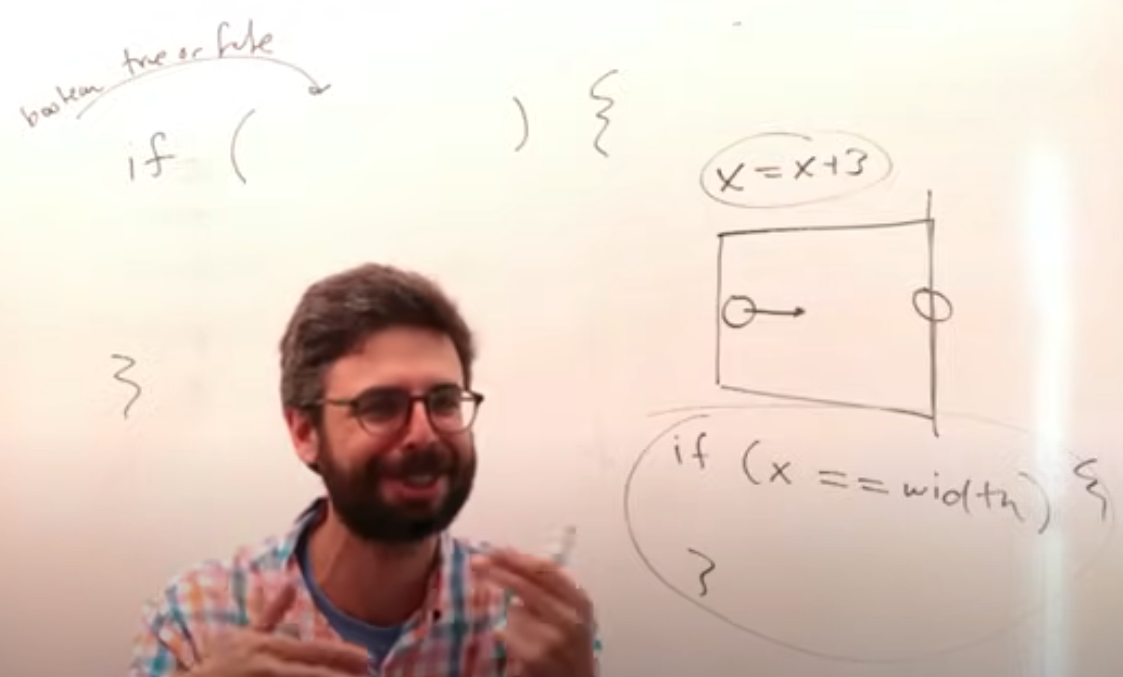 boolean true or false
if ( ) {
}
x = x+3
if (x == width) {
}